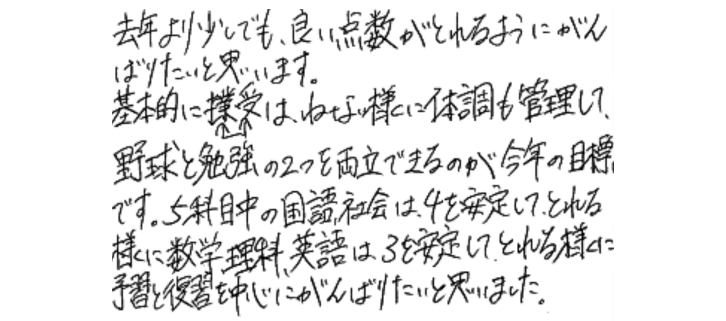 去年より少しでも、良い点数がとれるようにがん
ばりたいと思います。
基本的に授業は、ねない様に体調も管理して、
野球と勉強の2つを両立できるのが今年の目標
です。5科目中の国語、社会は、4を安定して、とれる
様に数学、理科、英語は、3を安定して、とれる様に
予習と復習を中心にがんばりたいと思いました。